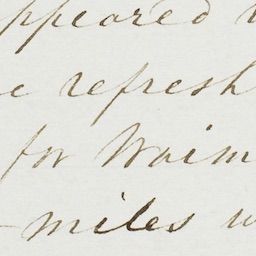 ppeared
refresh
for Waim
miles w